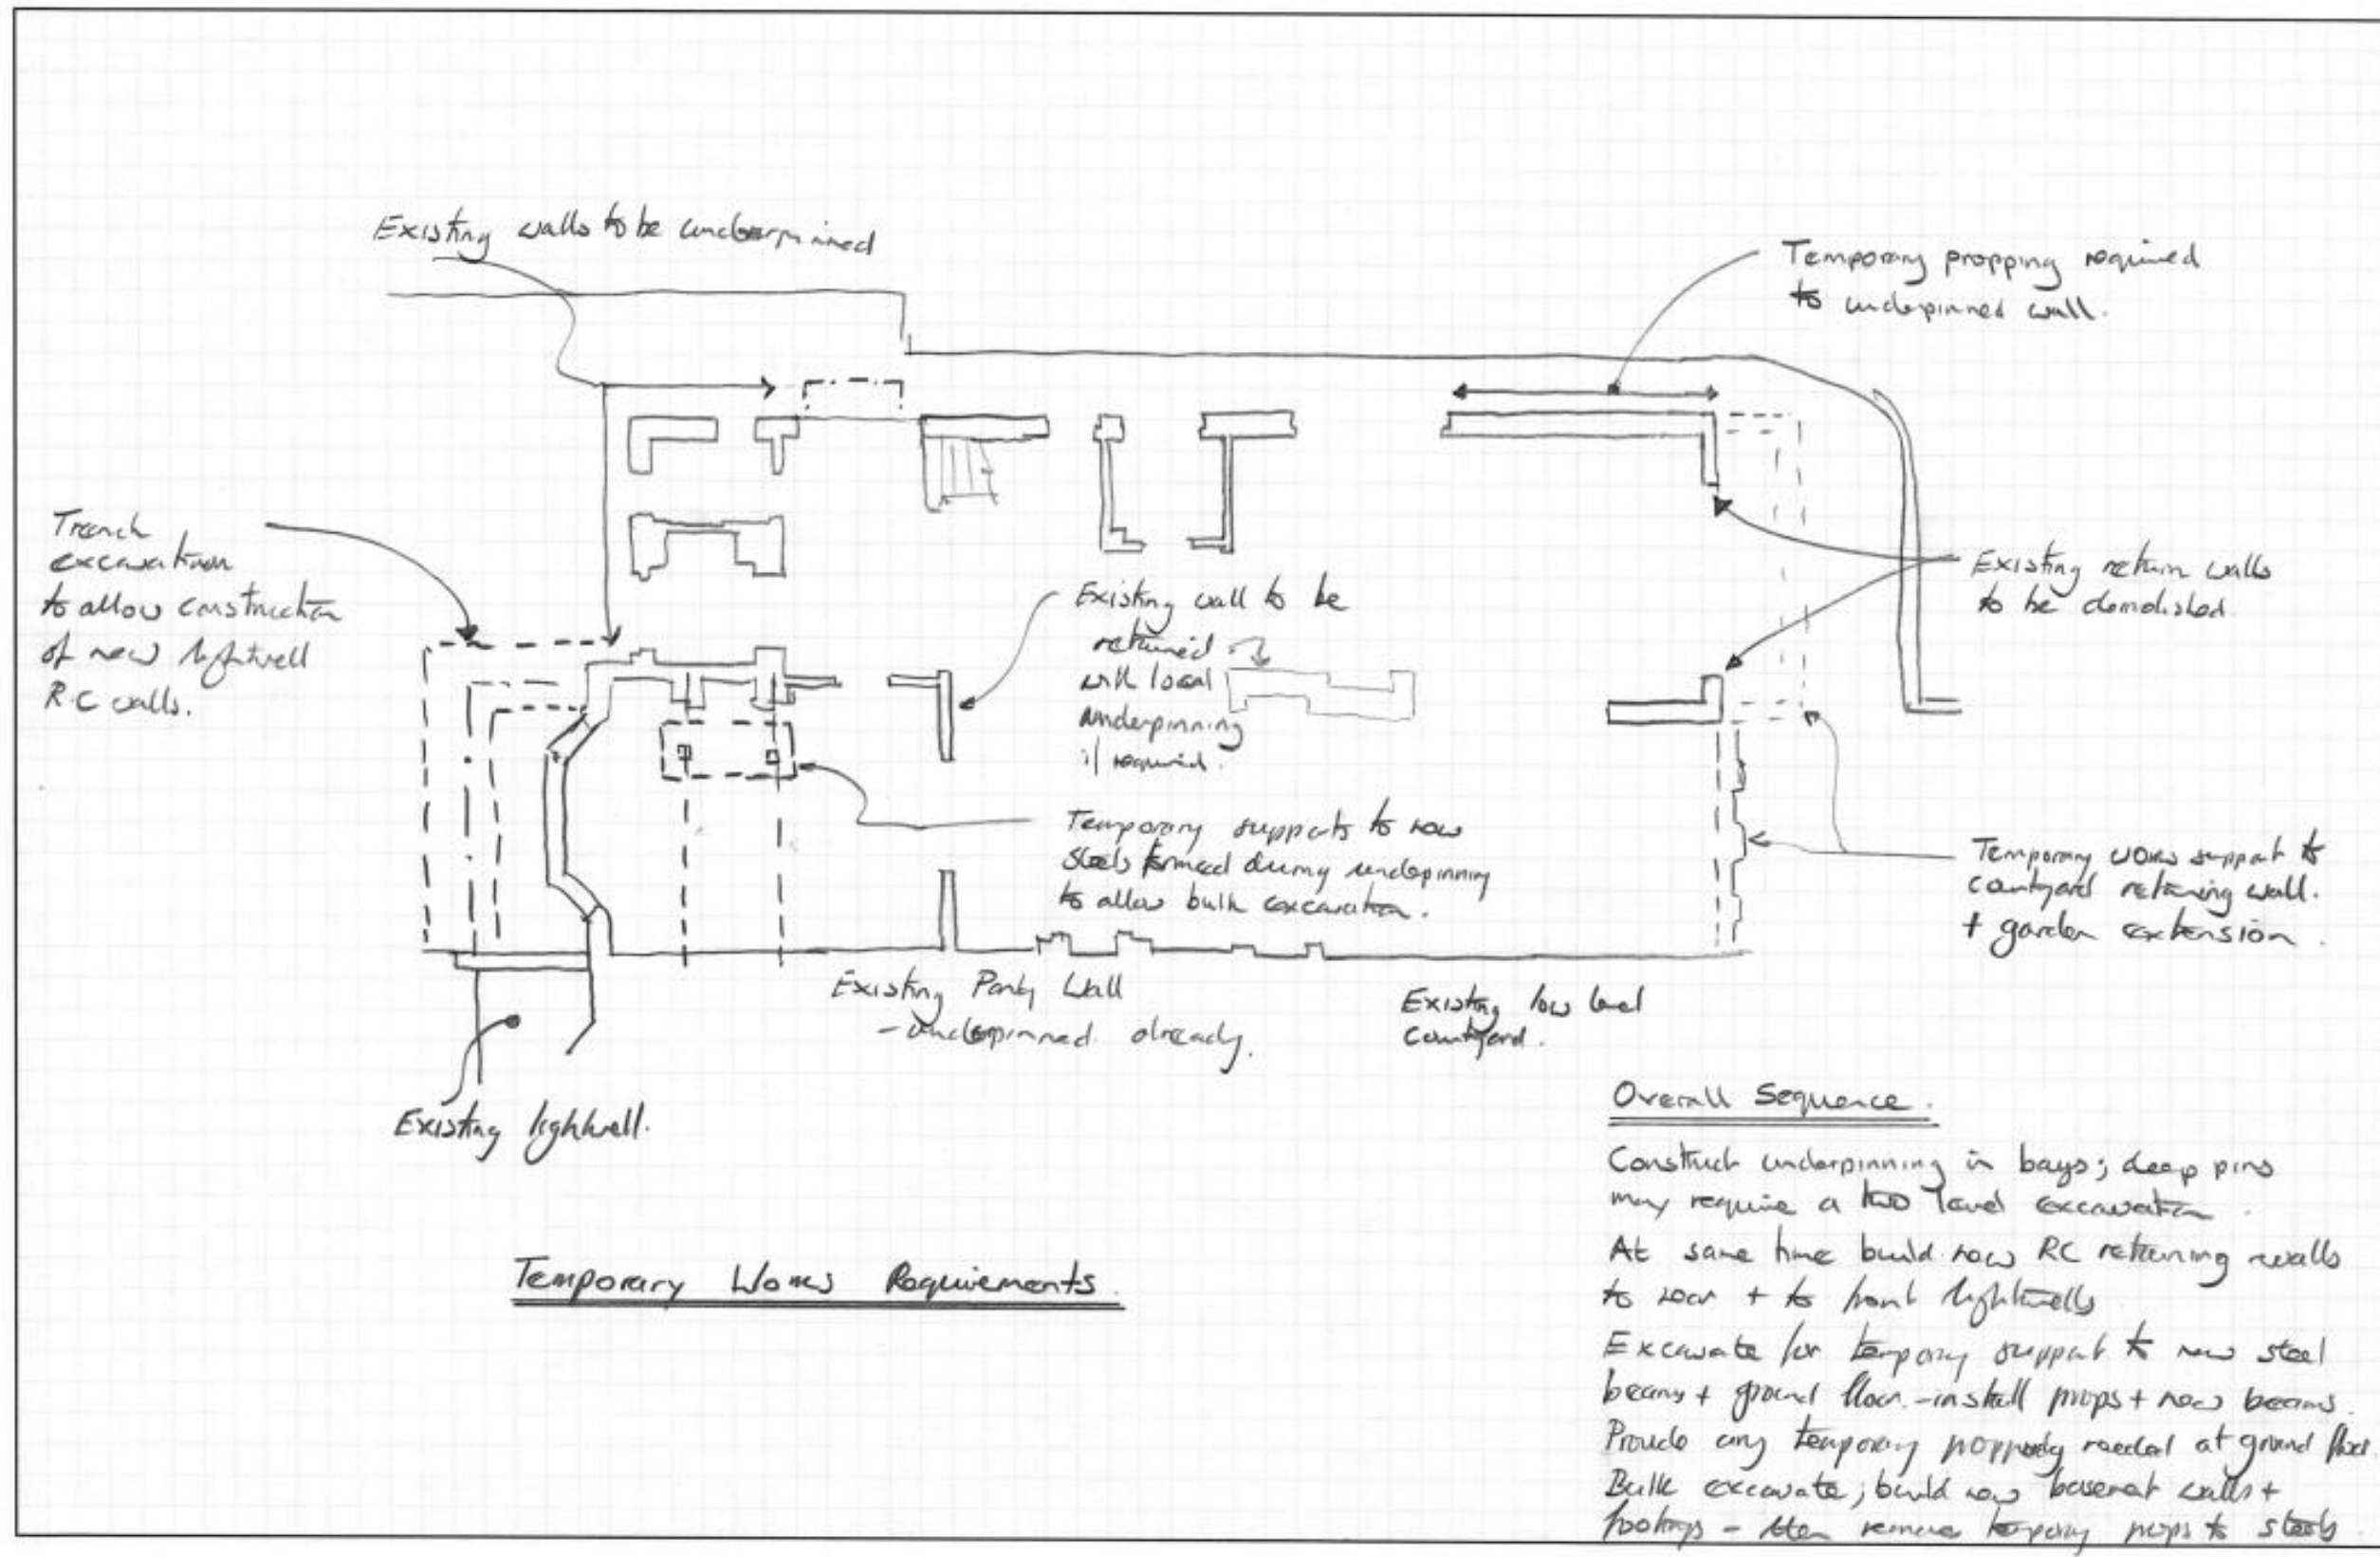 Existing walls to be underpinned
Temporary propping required
to underpinned wall.
Trench
excavation
to allow construction
of new lightwell
R.C walls.
Existing wall to be
retained
with local
underpinning
if required.
Existing return walls
to be demolished.
Temporary supports to new
steels formed during underpinning
to allow bulk excavation.
Temporary works support to
courtyard retaining wall.
+ garden extension.
Existing Party Wall
- underpinned already.
Existing low level
Courtyard.
Existing lightwell.
Temporary Works Requirements.
Overall Sequence.
Construct underpinning in bays; deep pins
may require a two level excavation.
At same time build new RC retaining walls
to rear + to front lightwells
Excavate for temporary support to new steel
beams + ground floor. - install props + new beams.
Provide any temporary needed at ground floor.
Bulk excavate; build new basement walls +
footings - then remove temporary props to steels